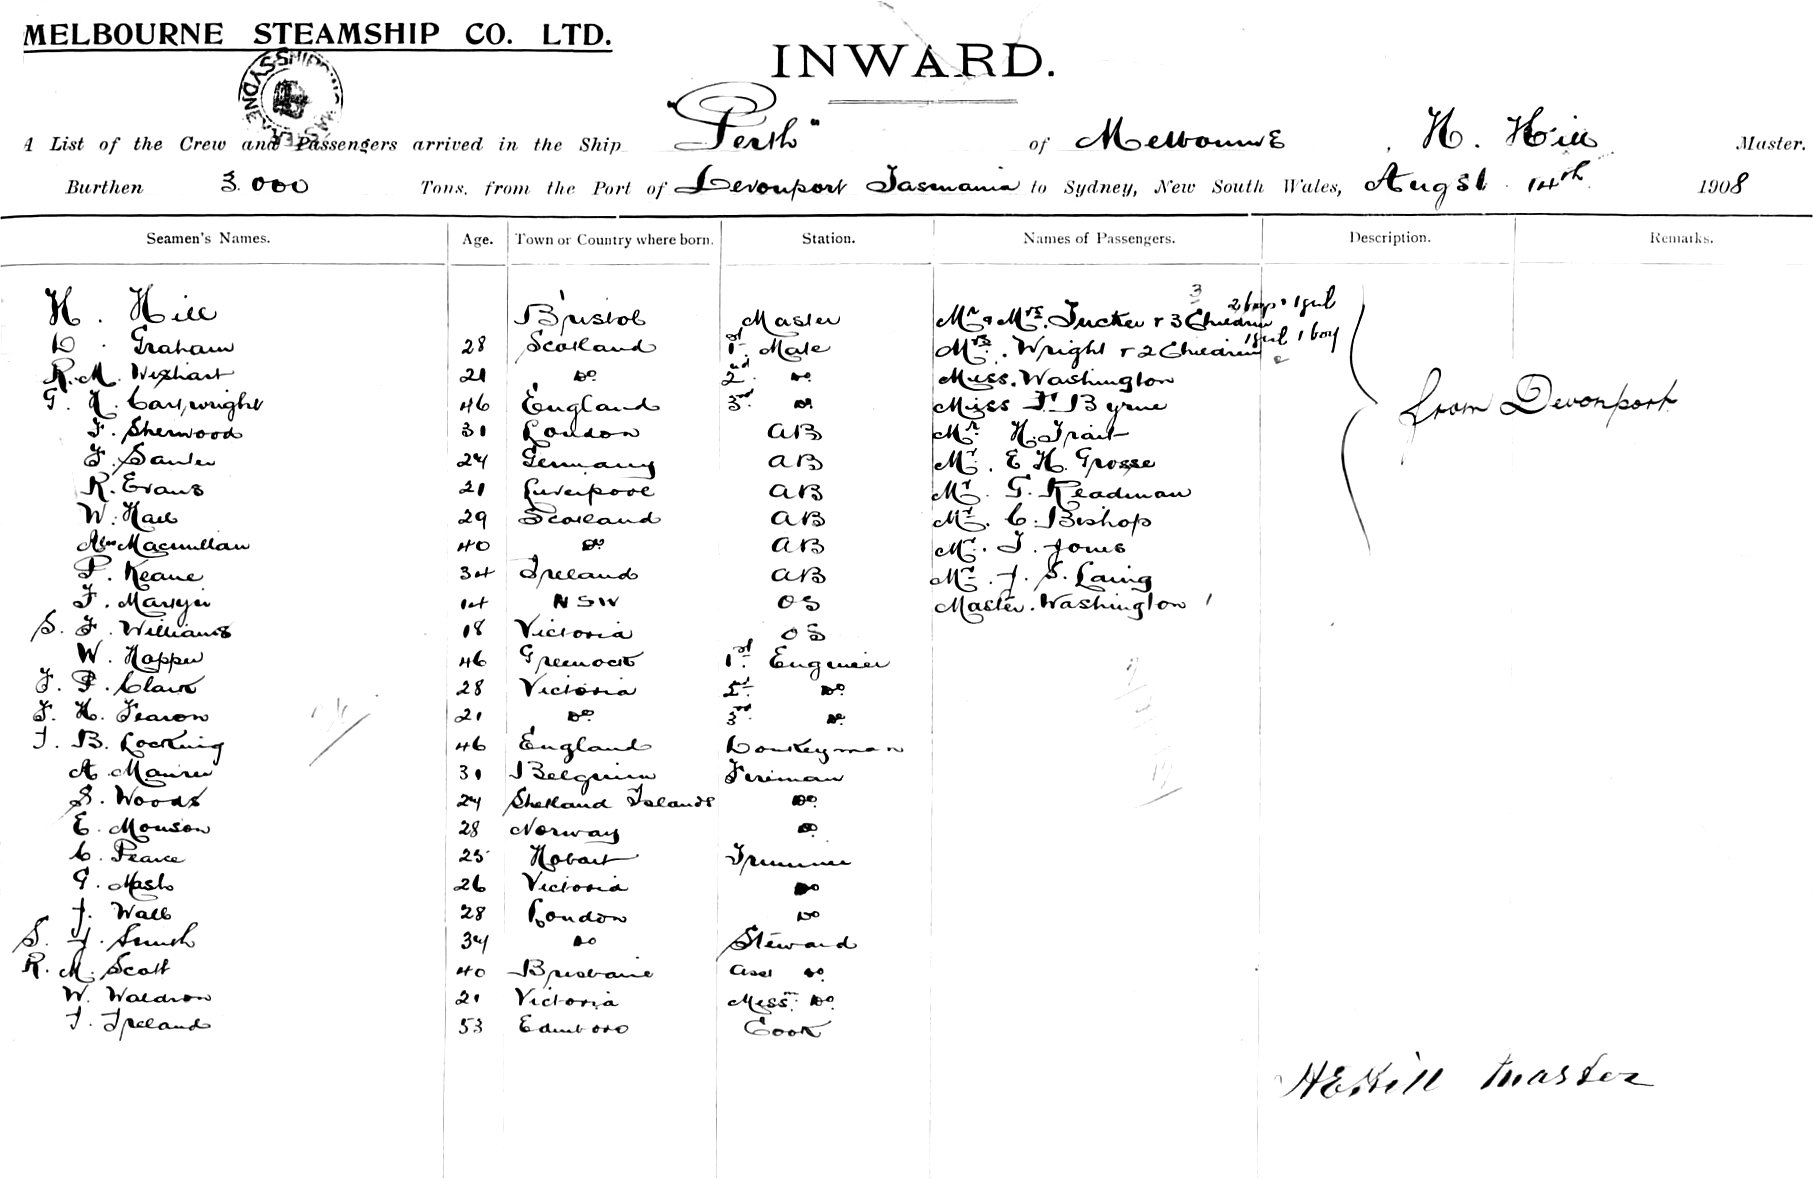 MELBOURNE STEAMSHIP CO. LTD.
INWARD.
A List of the Crew and Passengers arrived in the Ship Perth" of Melbourne, H. Hill Master.
Burthen 3.000 Tons, from the Port of Devonport Tasmania to Sydney, New South Wales, Augst 14th 1908
Seamen's Names. Age. Town or Country where born. Station. Names of Passengers. Description. Remarks.
H. Hill Bristol Master Mr & Mrs. Tucker + 3 Children 3 2 boys 1 girl
D. Graham 28 Scotland 1st Mate Mrs. Wright + 2 Children 1 girl 1 boy
R. M. Wishart 21 Do 2nd Do Miss. Washington
G. H. Cartwright 46 England 3rd Do Miss F. Byrne
F. Sherwood 31 London AB Mr H. Trait
F. 24 Germany AB Mr. E H. Grosse
R. Evans 21 Liverpool AB Mr. G. Readman
W. Hall 29 Scotland AB Mr. C. Bishop
Macmillan 40 Do AB Mr. T. Jones
P. Keane 34 Ireland AB Mr. J. S. Laing
F. 14 NSW OS Master. Washington 1
S. F. Williams 18 Victoria OS
W. Hopper 46 Greenock 1st Engineer
F. P. Clark 28 Victoria 2nd Do
F. H. Fearon 21 Do 3rd Do
T. B. Locking 46 England Donkeyman
A. Maurer 31 Belgium Fireman
S. Woods 24 Shetland Islands Do
E. Monson 28 Norway Do
C. Pearce 25 Hobart Trimmer
G. Mash 26 Victoria Do
J. Wall 28 London Do
S. J. Smith 34 Do Steward
R. M. Scott 40 Brisbane Asst Do
W. Waldron 21 Victoria Messm Do
T. Ireland 53 Edinboro Cook
from Devonport
HEHill Master